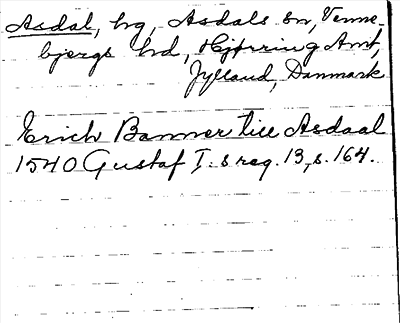 Asdal, hg, Asdals sn, Venne-
bjergs hd, Hjørring Amt,
Jylland, Danmark
Erich Banner till Asdaal
1540 Gustaf I. s reg. 13, s. 164.